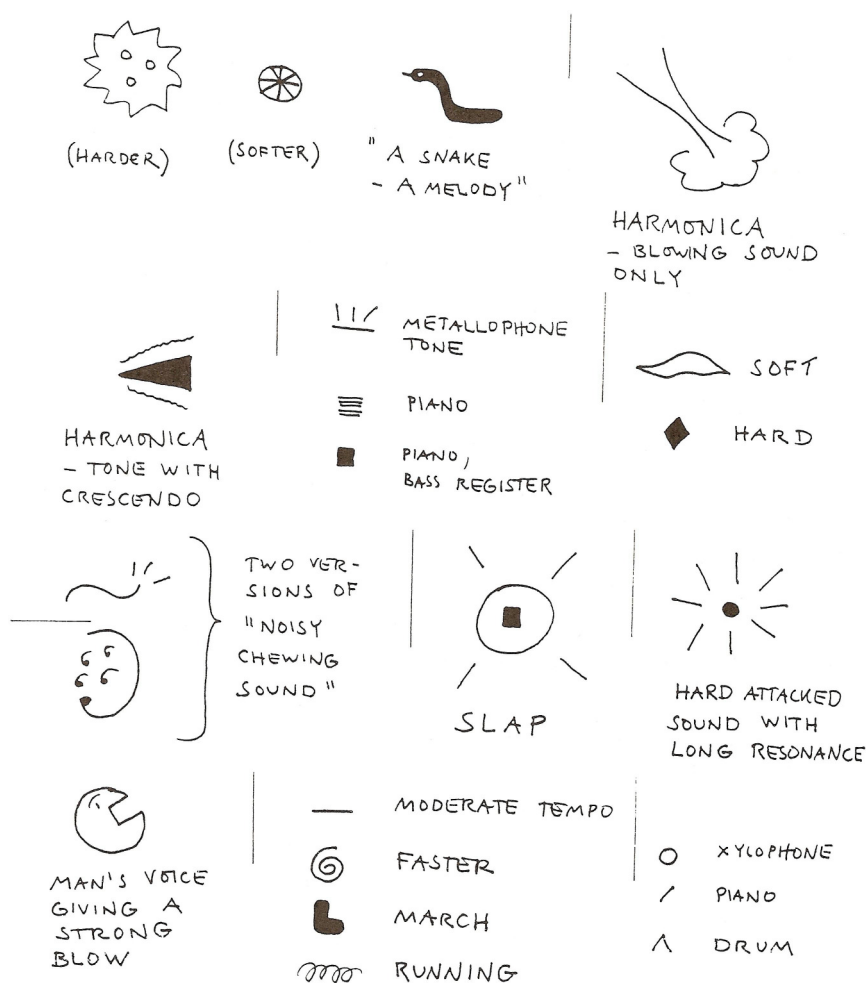 (HARDER)
(SOFTER)
"A SNAKE
- A MELODY"
HARMONICA
- BLOWING SOUND
ONLY
HARMONICA
- TONE WITH
CRESCENDO
METALLOPHONE
TONE
PIANO
PIANO,
BASS REGISTER
SOFT
HARD
TWO VER-
SIONS OF
"NOISY
CHEWING
SOUND"
SLAP
HARD ATTACKED
SOUND WITH
LONG RESONANCE
MAN'S VOICE
GIVING A
STRONG
BLOW
MODERATE TEMPO
FASTER
MARCH
RUNNING
XYLOPHONE
PIANO
DRUM